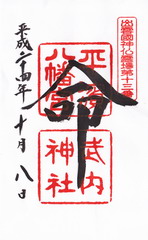 出雲國神仏霊場第十三番
平濱
八幡宮
武内
神社
命
平成二十四年十月八日